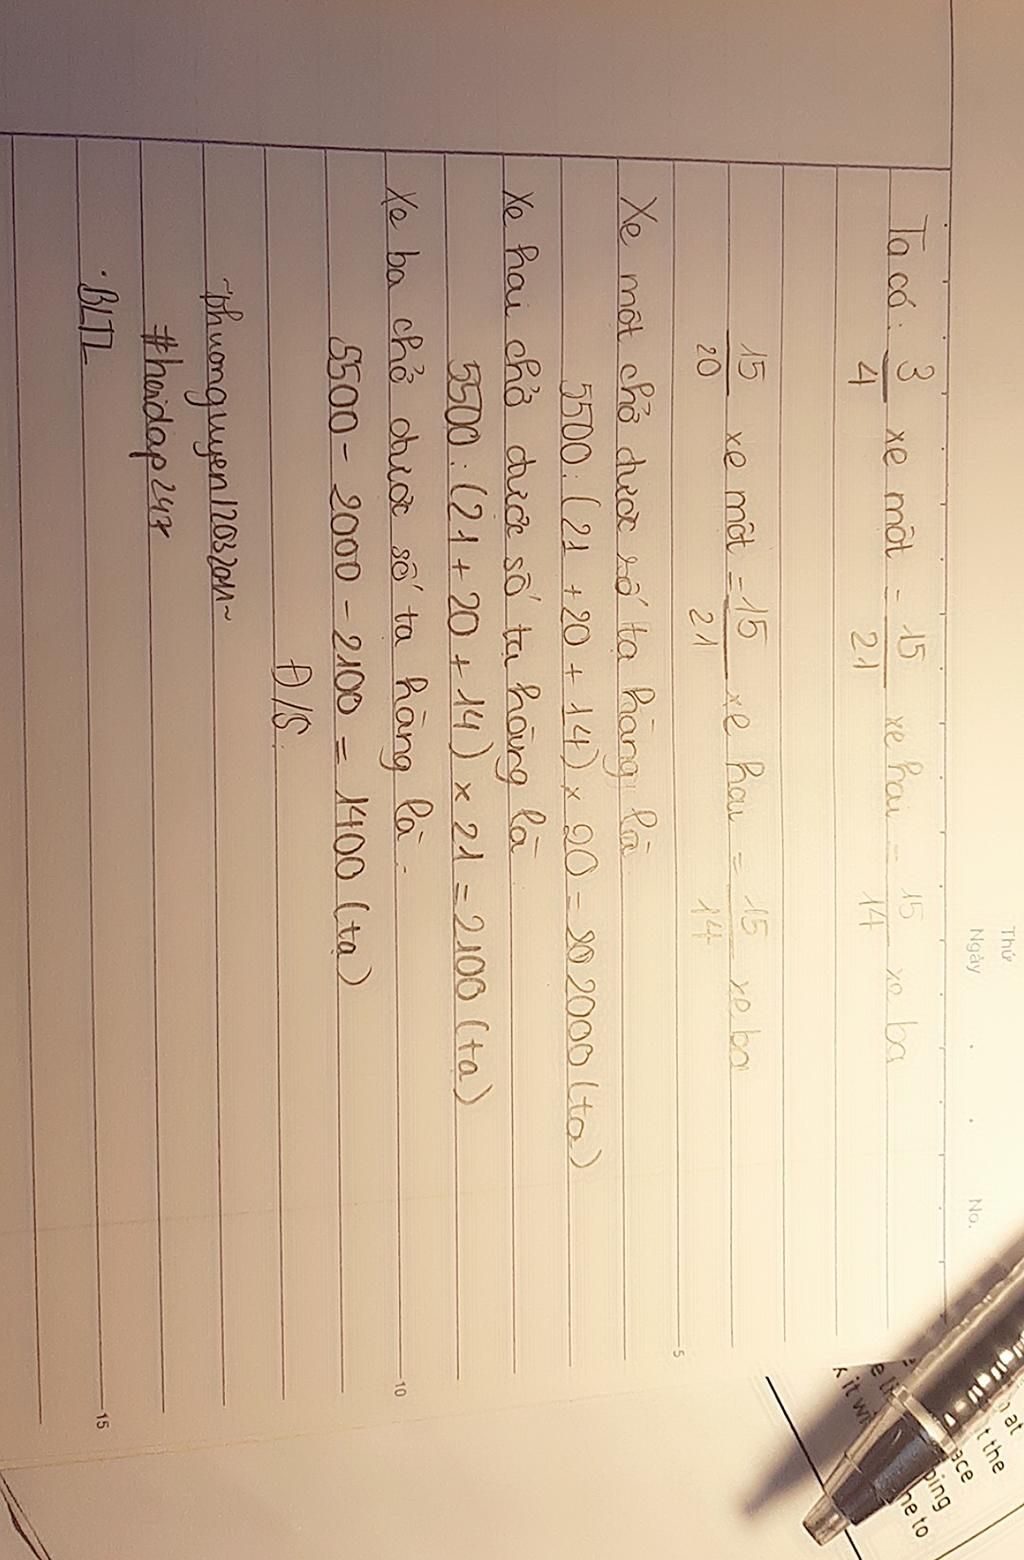 Thứ
Ngày . . No.
Ta có: 3/4 xe một = 15/21 xe hai = 15/14 xe ba
15/20 xe một = 15/21 xe hai = 15/14 xe ba
Xe một chở được số tạ hàng là
5500 : (21 + 20 + 14) x 20 = 2000 (tạ)
Xe hai chở được số tạ hàng là
5500 : (21 + 20 + 14) x 21 = 2100 (tạ)
Xe ba chở được số tạ hàng là.
5500 - 2000 - 2100 = 1400 (tạ)
Đ/S:
~phuonguyen12032011~
#hoidap247
.BLTL
5
10
15
at
t the
ace
ping
ne to
k it wi